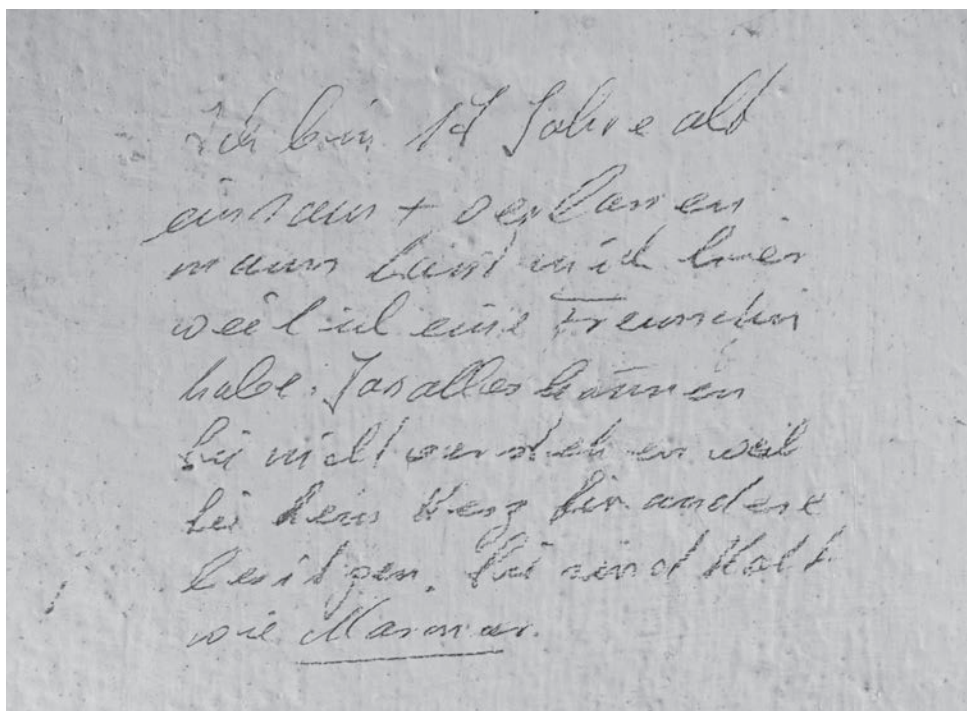 Ich bin 17 Jahre alt
einsam + verlassen
mann hast mich hier
weil ich eine Freundin
habe. Das alles können
sie nicht verstehen weil
sie kein Herz für andere
besitzen. Sie sind Kalt
wie Marmor.